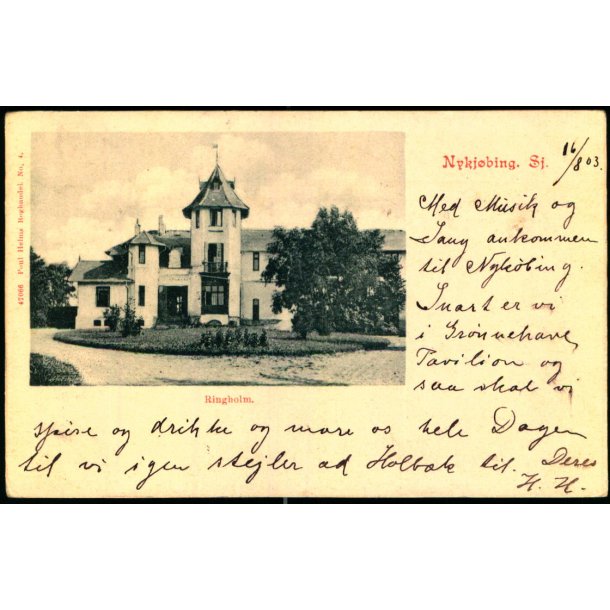 42066 Poul Helms Boghandel. No. 4.
Nykjøbing. Sj.
16/8 03.
Med Musik og
Sang ankommen
til Nykøbing.
Snart er vi
i Grønnehave
Pavilion og
saa skal vi
spise og drikke og more os hele Dagen
til vi igen stejler ad Holbæk til. Deres
H. H.
Ringholm.